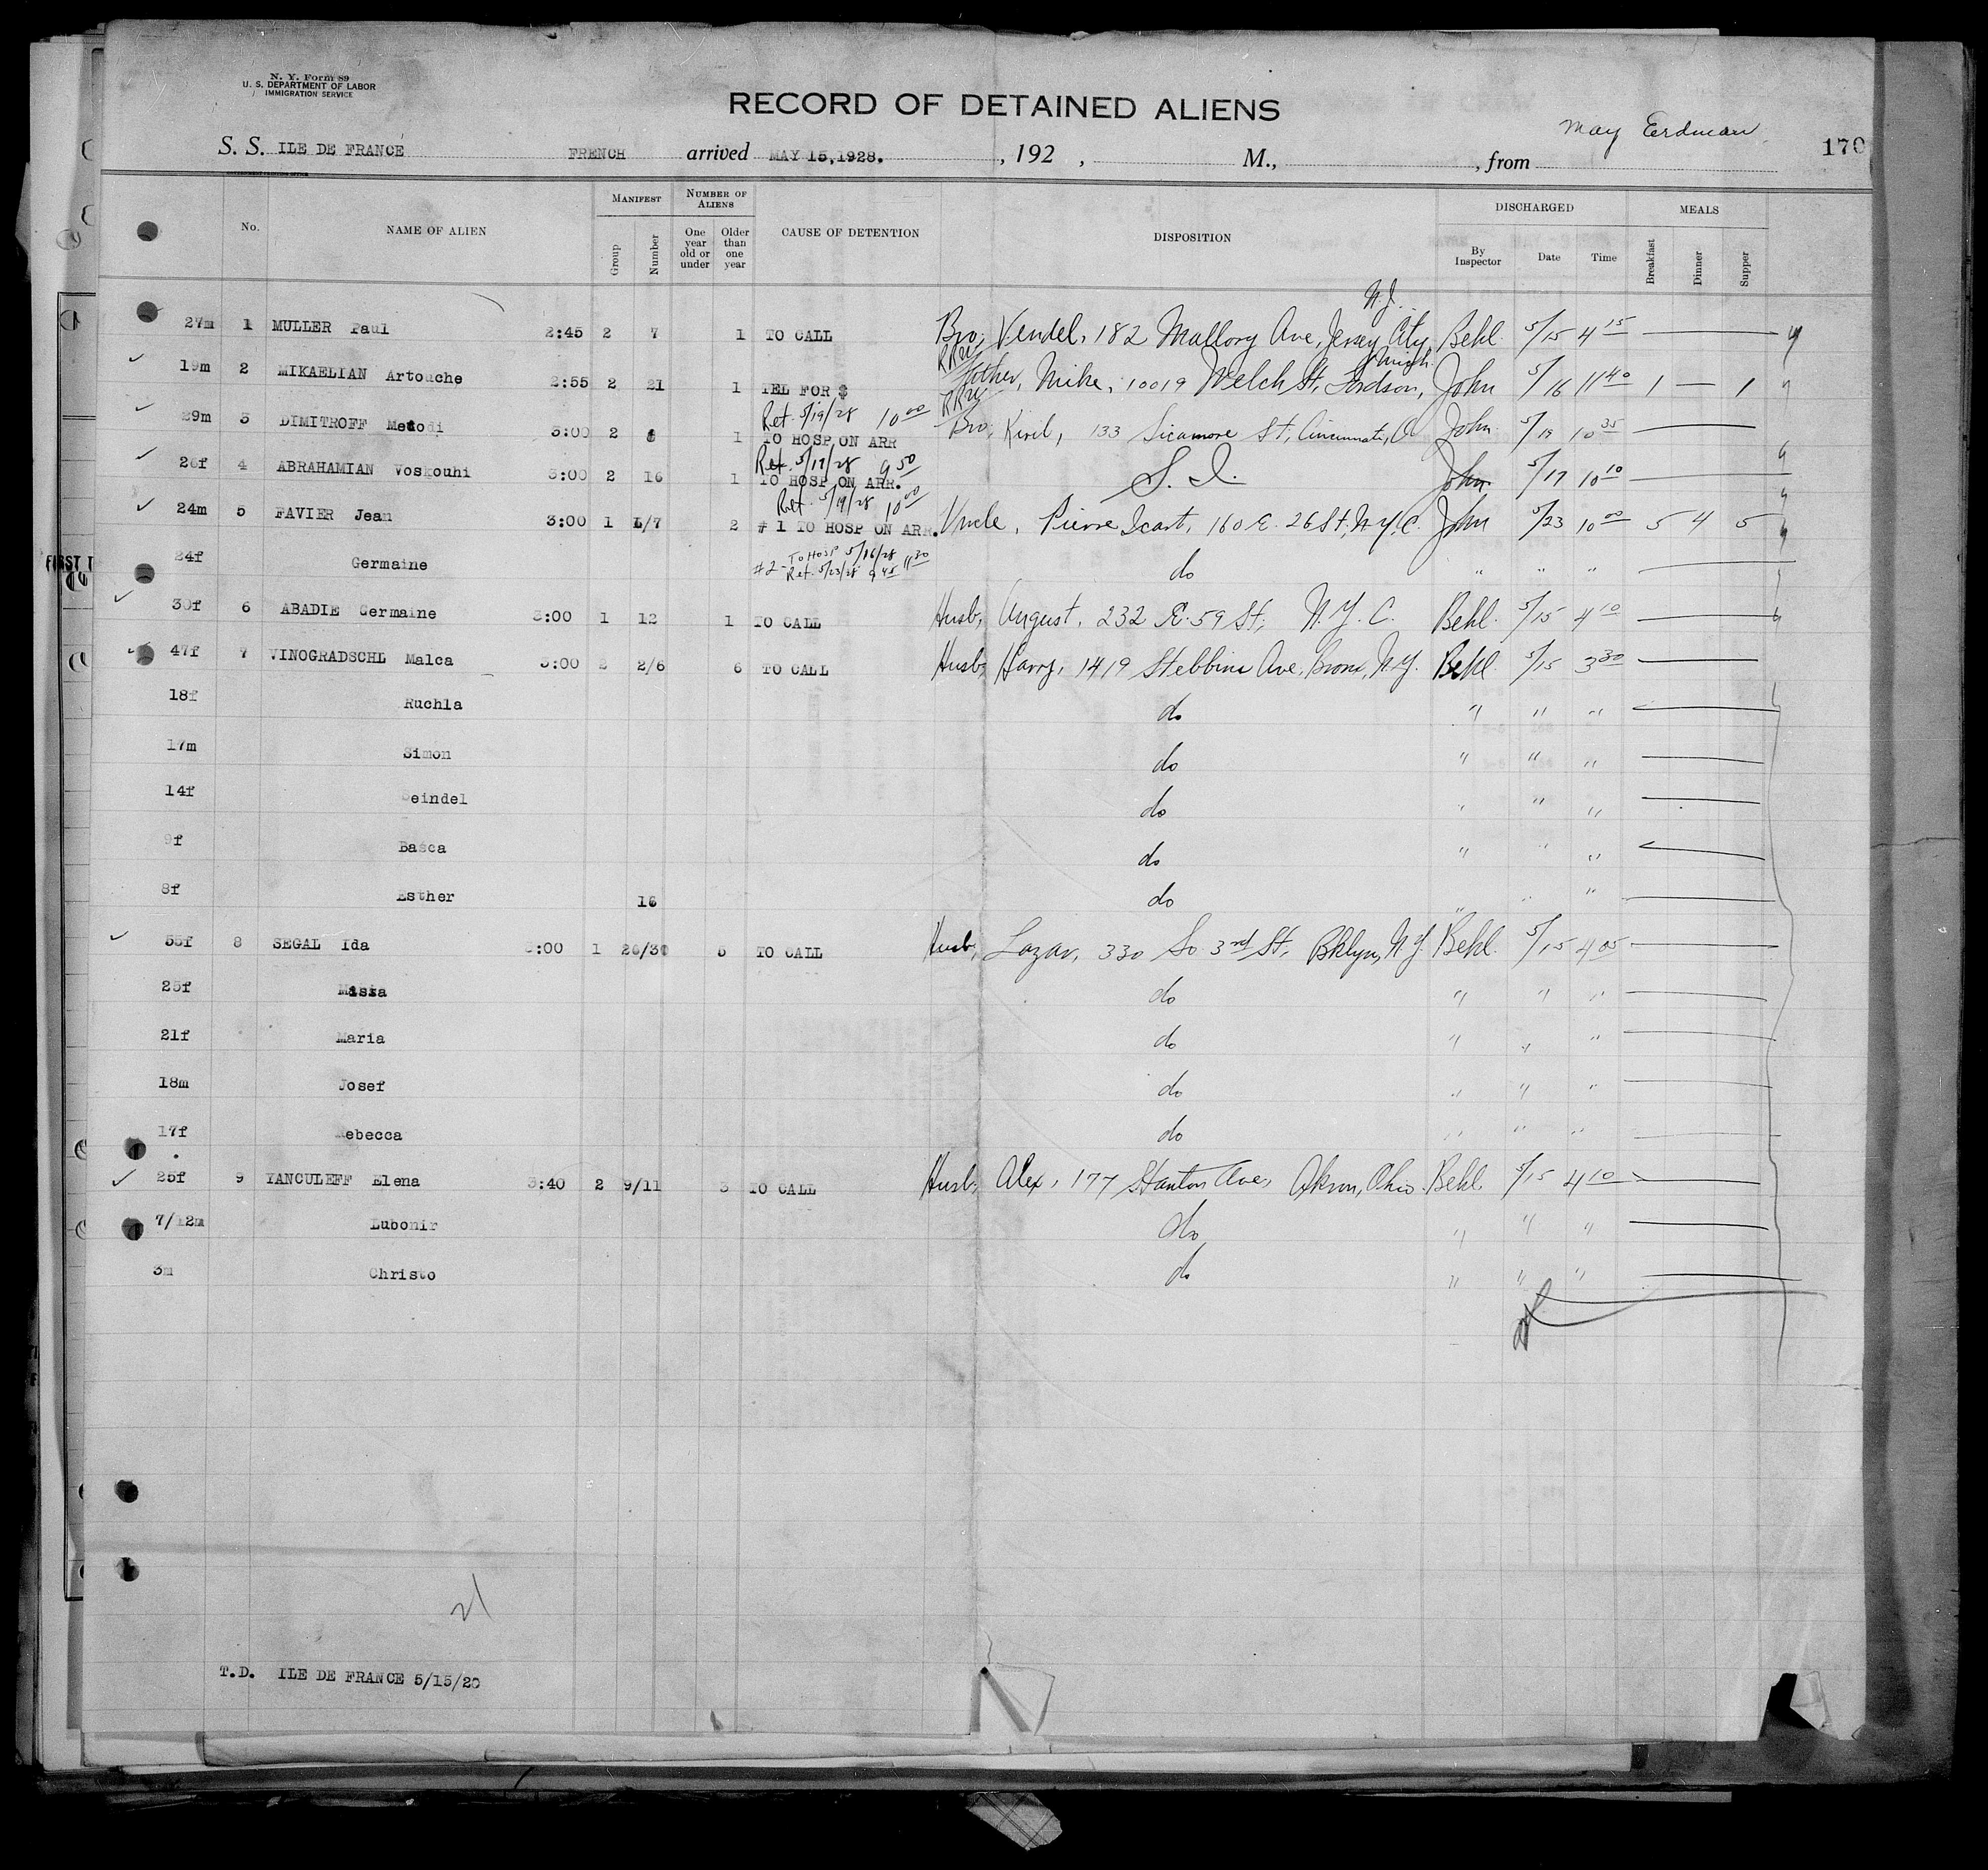 N. Y. Form 89
U. S. DEPARTMENT OF LABOR
IMMIGRATION SERVICE
RECORD OF DETAINED ALIENS
May Erdman
170
S. S. ILE DE FRANCE FRENCH arrived MAY 15, 1928. , 192 , M., , from
No. NAME OF ALIEN MANIFEST Group Number NUMBER OF ALIENS One year old or under Older than one year CAUSE OF DETENTION DISPOSITION DISCHARGED By Inspector Date Time MEALS Breakfast Dinner Supper
N.J.
27m 1 MULLER Paul 2:45 2 7 1 TO CALL Bro, Vendel, 182 Mallory Ave, Jersey City, Behl 5/15 4 15
Mich.
19m 2 MIKAELIAN Artouche 2:55 2 21 1 TEL FOR $ Father, Mike, 10019 Welch St, Fordson, John 5/16 11 40 1 — 1
Ret. 5/19/28 10 00
29m 3 DIMITROFF Metodi 3:00 2 1 TO HOSP ON ARR Bro, Kiril, 133 Sicamore St, Cincinnati, O John 5/19 10 35
Ret. 5/17/28 9 50
26f 4 ABRAHAMIAN Voskouhi 3:00 2 16 1 TO HOSP ON ARR. S. I. John 5/17 10 10
Ret. 5/19/28 10 00
24m 5 FAVIER Jean 3:00 1 /7 2 # 1 TO HOSP ON ARR. Uncle, Pierre Icart, 160 E. 26 St, N.Y.C. John 5/23 10 00 5 4 5
24f Germaine #2 - To Hosp 5/16/28 11 30 do " " "
Ret. 5/23/28 9 45
FIRST T
30f 6 ABADIE Germaine 3:00 1 12 1 TO CALL Husb, August, 232 E. 59 St, N.Y.C. Behl. 5/15 4 10
47f 7 VINOGRADSCHL Malca 3:00 2 2/6 6 TO CALL Husb, Harry, 1419 Stebbins Ave, Bronx, N.Y. Behl 5/15 3 30
18f Ruchla do " " "
17m Simon do " " "
14f eindel do " " "
9f Basca do " " "
8f Esther 16 do " " "
55f 8 SEGAL Ida 3:00 1 26/30 5 TO CALL Husb, Lazar, 330 So 3rd St, Bklyn, N.Y. Behl. 5/15 4 05
25f do " " "
21f Maria do " " "
18m Josef do " " "
17f Rebecca do " " "
25f 9 YANCULEFF Elena 3:40 2 9/11 3 TO CALL Husb, Alex, 177 Stanton Ave, Akron, Ohio. Behl 5/15 4 10
7/12m Lubomir do " " "
3m Christo do " " "
21
T.D. ILE DE FRANCE 5/15/28